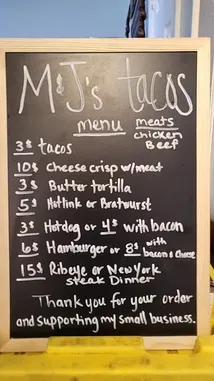 M&J's tacos
menu meats
chicken
Beef
3$ tacos
10$ cheese crisp w/meat
3$ Butter tortilla
5$ Hotlink or Bratwurst
3$ Hotdog or 4$ with bacon
6$ Hamburger or 8$ with bacon & cheese
15$ Ribeye or New York
steak Dinner
Thank you for your order
and supporting my small business.